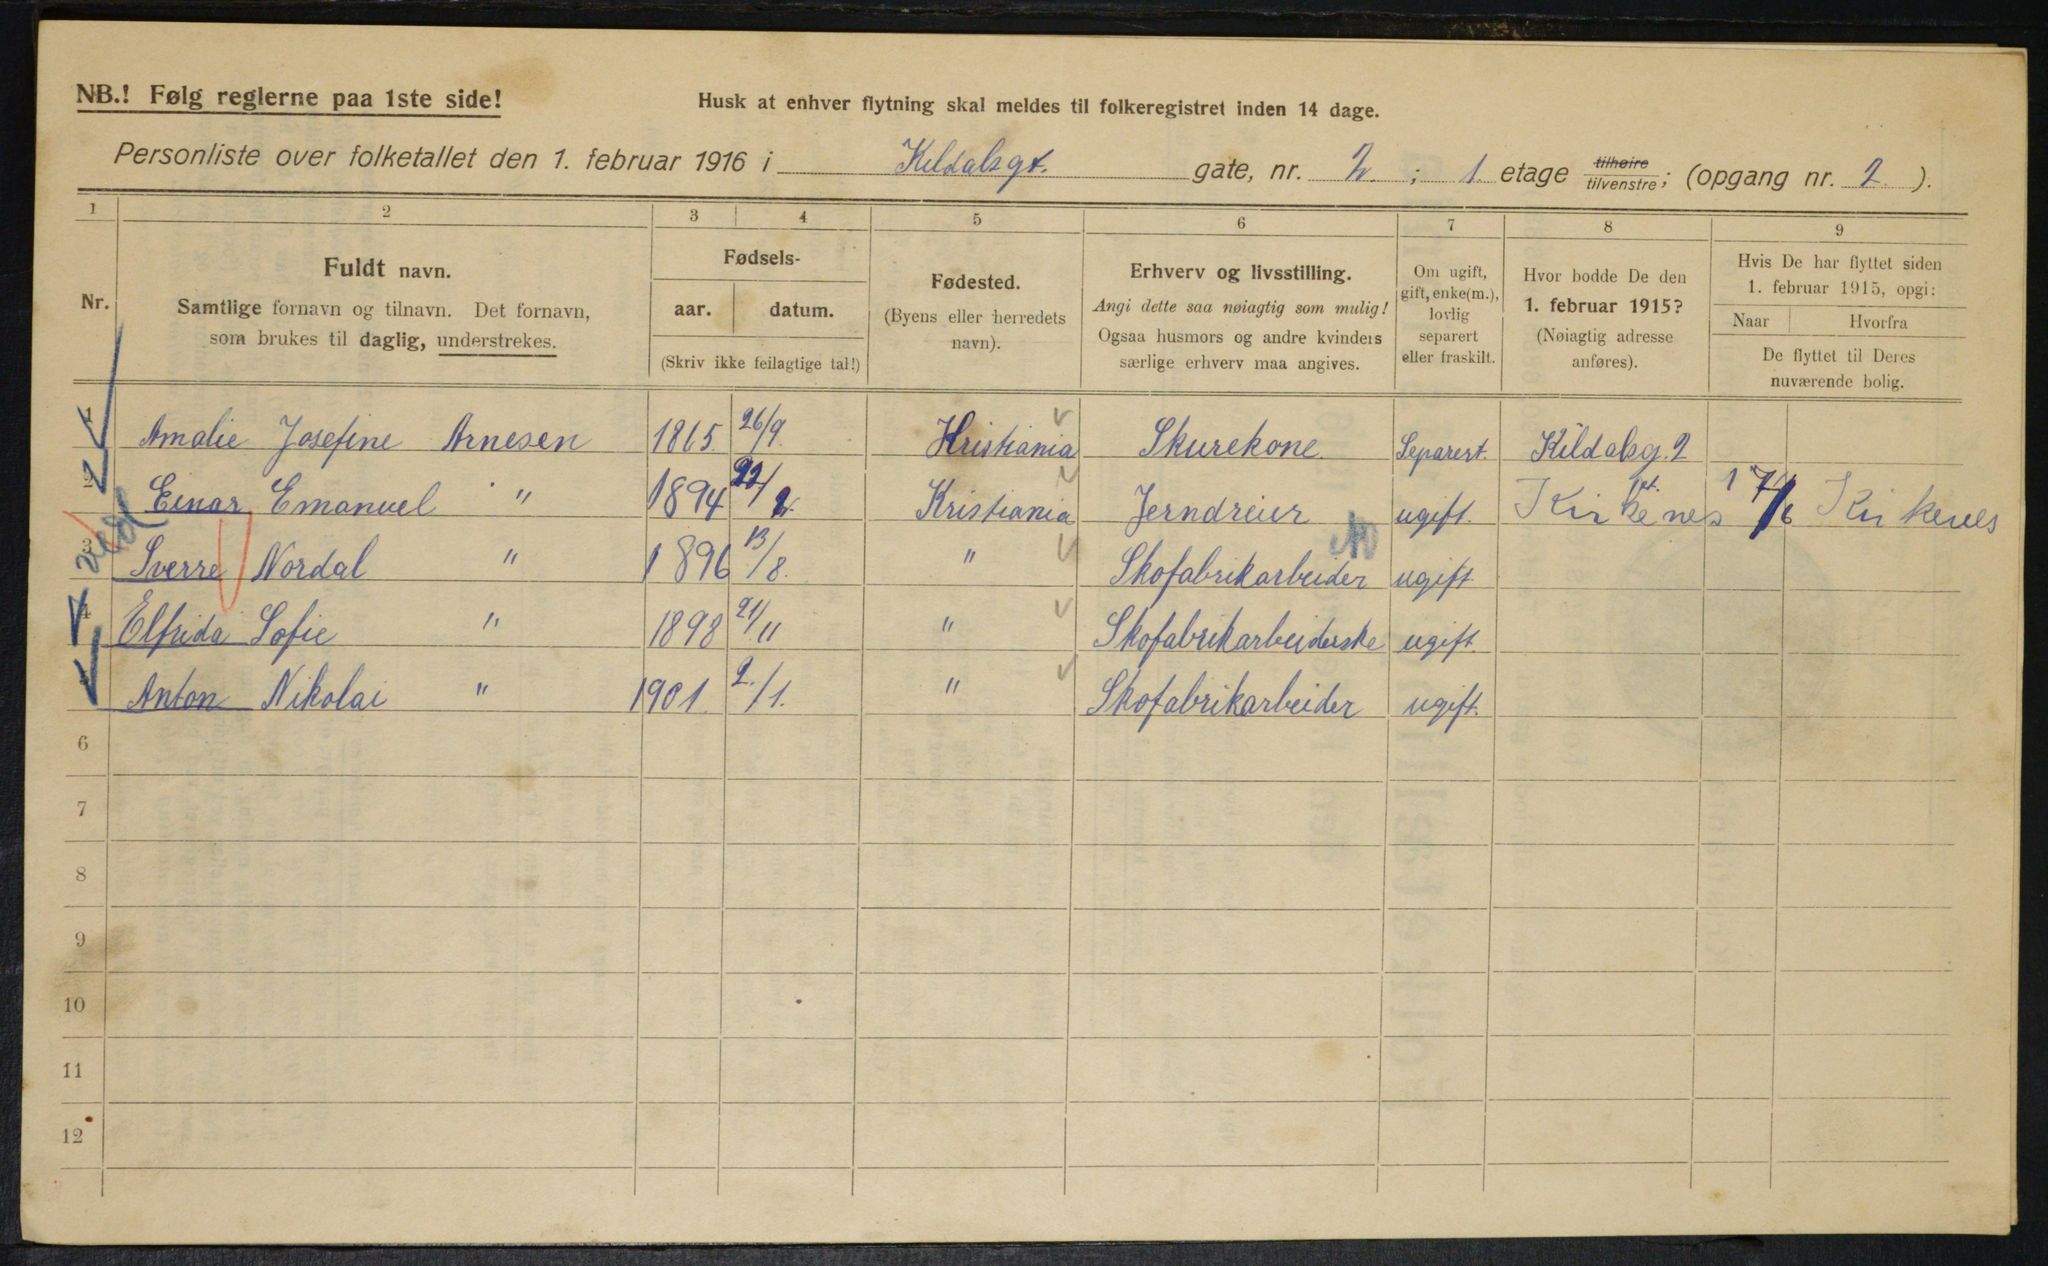 NB.! Følg reglerne paa 1ste side!
Husk at enhver flytning skal meldes til folkeregistret inden 14 dage.
Personliste over folketallet den 1. februar 1916 i Kildalsgt. gate, nr. 2. ; 1. etage tilhøire tilvenstre; (opgang nr. 2. ).
1 2 3 4 5 6 7 8 9
Nr.
Fuldt navn.
Samtlige fornavn og tilnavn. Det fornavn,
som brukes til daglig, understrekes.
Fødsels-
aar. datum.
(Skriv ikke feilagtige tal!)
Fødested.
(Byens eller herredets
navn).
Erhverv og livsstilling.
Angi dette saa nøiagtig som mulig!
Ogsaa husmors og andre kvinders
særlige erhverv maa angives.
Om ugift,
gift, enke(m.),
lovlig
separert
eller fraskilt.
Hvor bodde De den
1. februar 1915?
(Nøiagtig adresse
anføres).
Hvis De har flyttet siden
1. februar 1915, opgi:
Naar Hvorfra
De flyttet til Deres
nuværende bolig.
1 Amalie Josefine Arnesen 1865. 26/9. Kristiania Skurekone. Separert. Kildalsg. 2
2 Einar Emanuel " 1894 22/2. Kristiania Jerndreier ugift. Kirkenes 17/6 Kirkenes
3 Sverre Nordal " 1896 13/8. " Skofabrikarbeider ugift.
4 Elfrida Sofie " 1898 21/11 " Skofabrikarbeiderske ugift.
Anton Nikolai " 1901 2./1. " Skofabrikarbeider ugift.
6
7
8
9
10
11
12